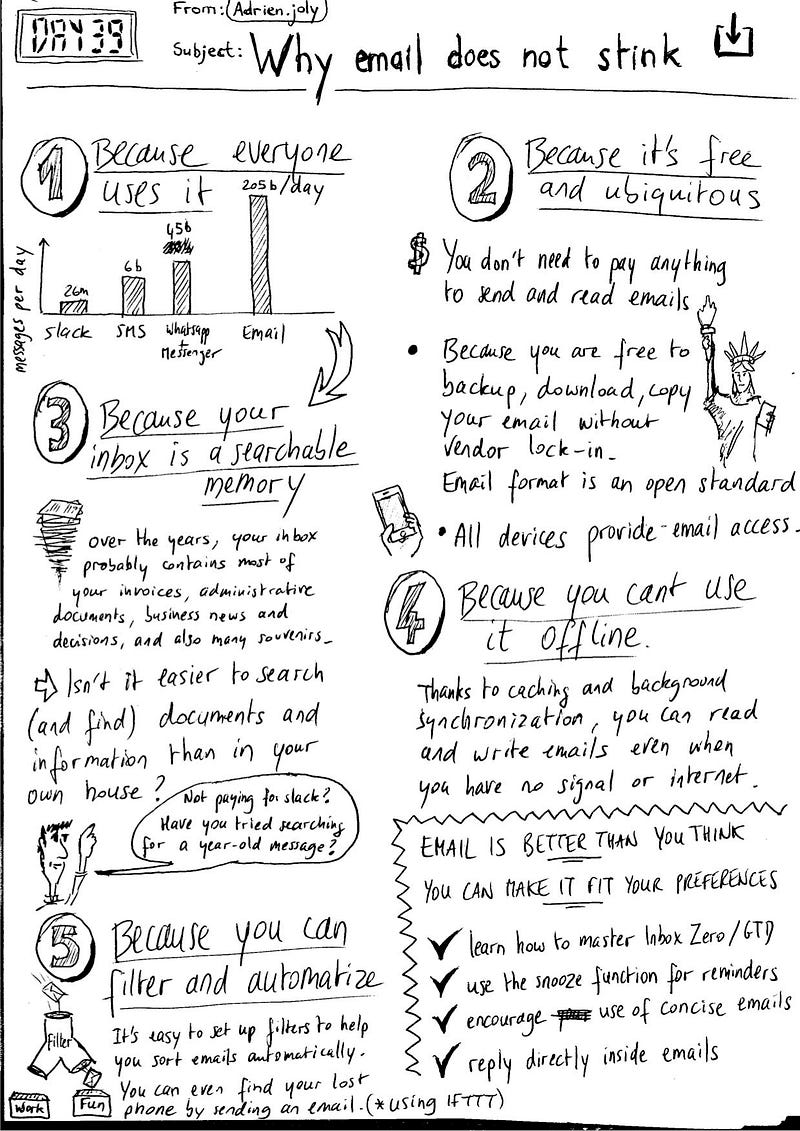 DAY 39
From: Adrien.joly
Subject: Why email does not stink
1 Because everyone
uses it
messages per day
26m
6b
45b
205b/day
Slack
SMS
Whatsapp
+
Messenger
Email
2 Because it's free
and ubiquitous
$ You don't need to pay anything
to send and read emails
• Because you are free to
backup, download, copy
your email without
vendor lock-in.
Email format is an open standard
• All devices provide email access.
3 Because your
inbox is a searchable
memory
over the years, your inbox
probably contains most of
your invoices, administrative
documents, business news and
decisions, and also many souvenirs.
Isn't it easier to search
(and find) documents and
information than in your
own house?
Not paying for slack?
Have you tried searching
for a year-old message?
4 Because you cant use
it offline.
Thanks to caching and background
synchronization, you can read
and write emails even when
you have no signal or internet.
EMAIL IS BETTER THAN YOU THINK
YOU CAN MAKE IT FIT YOUR PREFERENCES
✓ learn how to master Inbox Zero/GTD
✓ use the snooze function for reminders
✓ encourage use of concise emails
✓ reply directly inside emails
5 Because you can
filter and automatize
Filter
Work
Fun
It's easy to set up filters to help
you sort emails automatically.
You can even find your lost
phone by sending an email. (* using IFTTT)